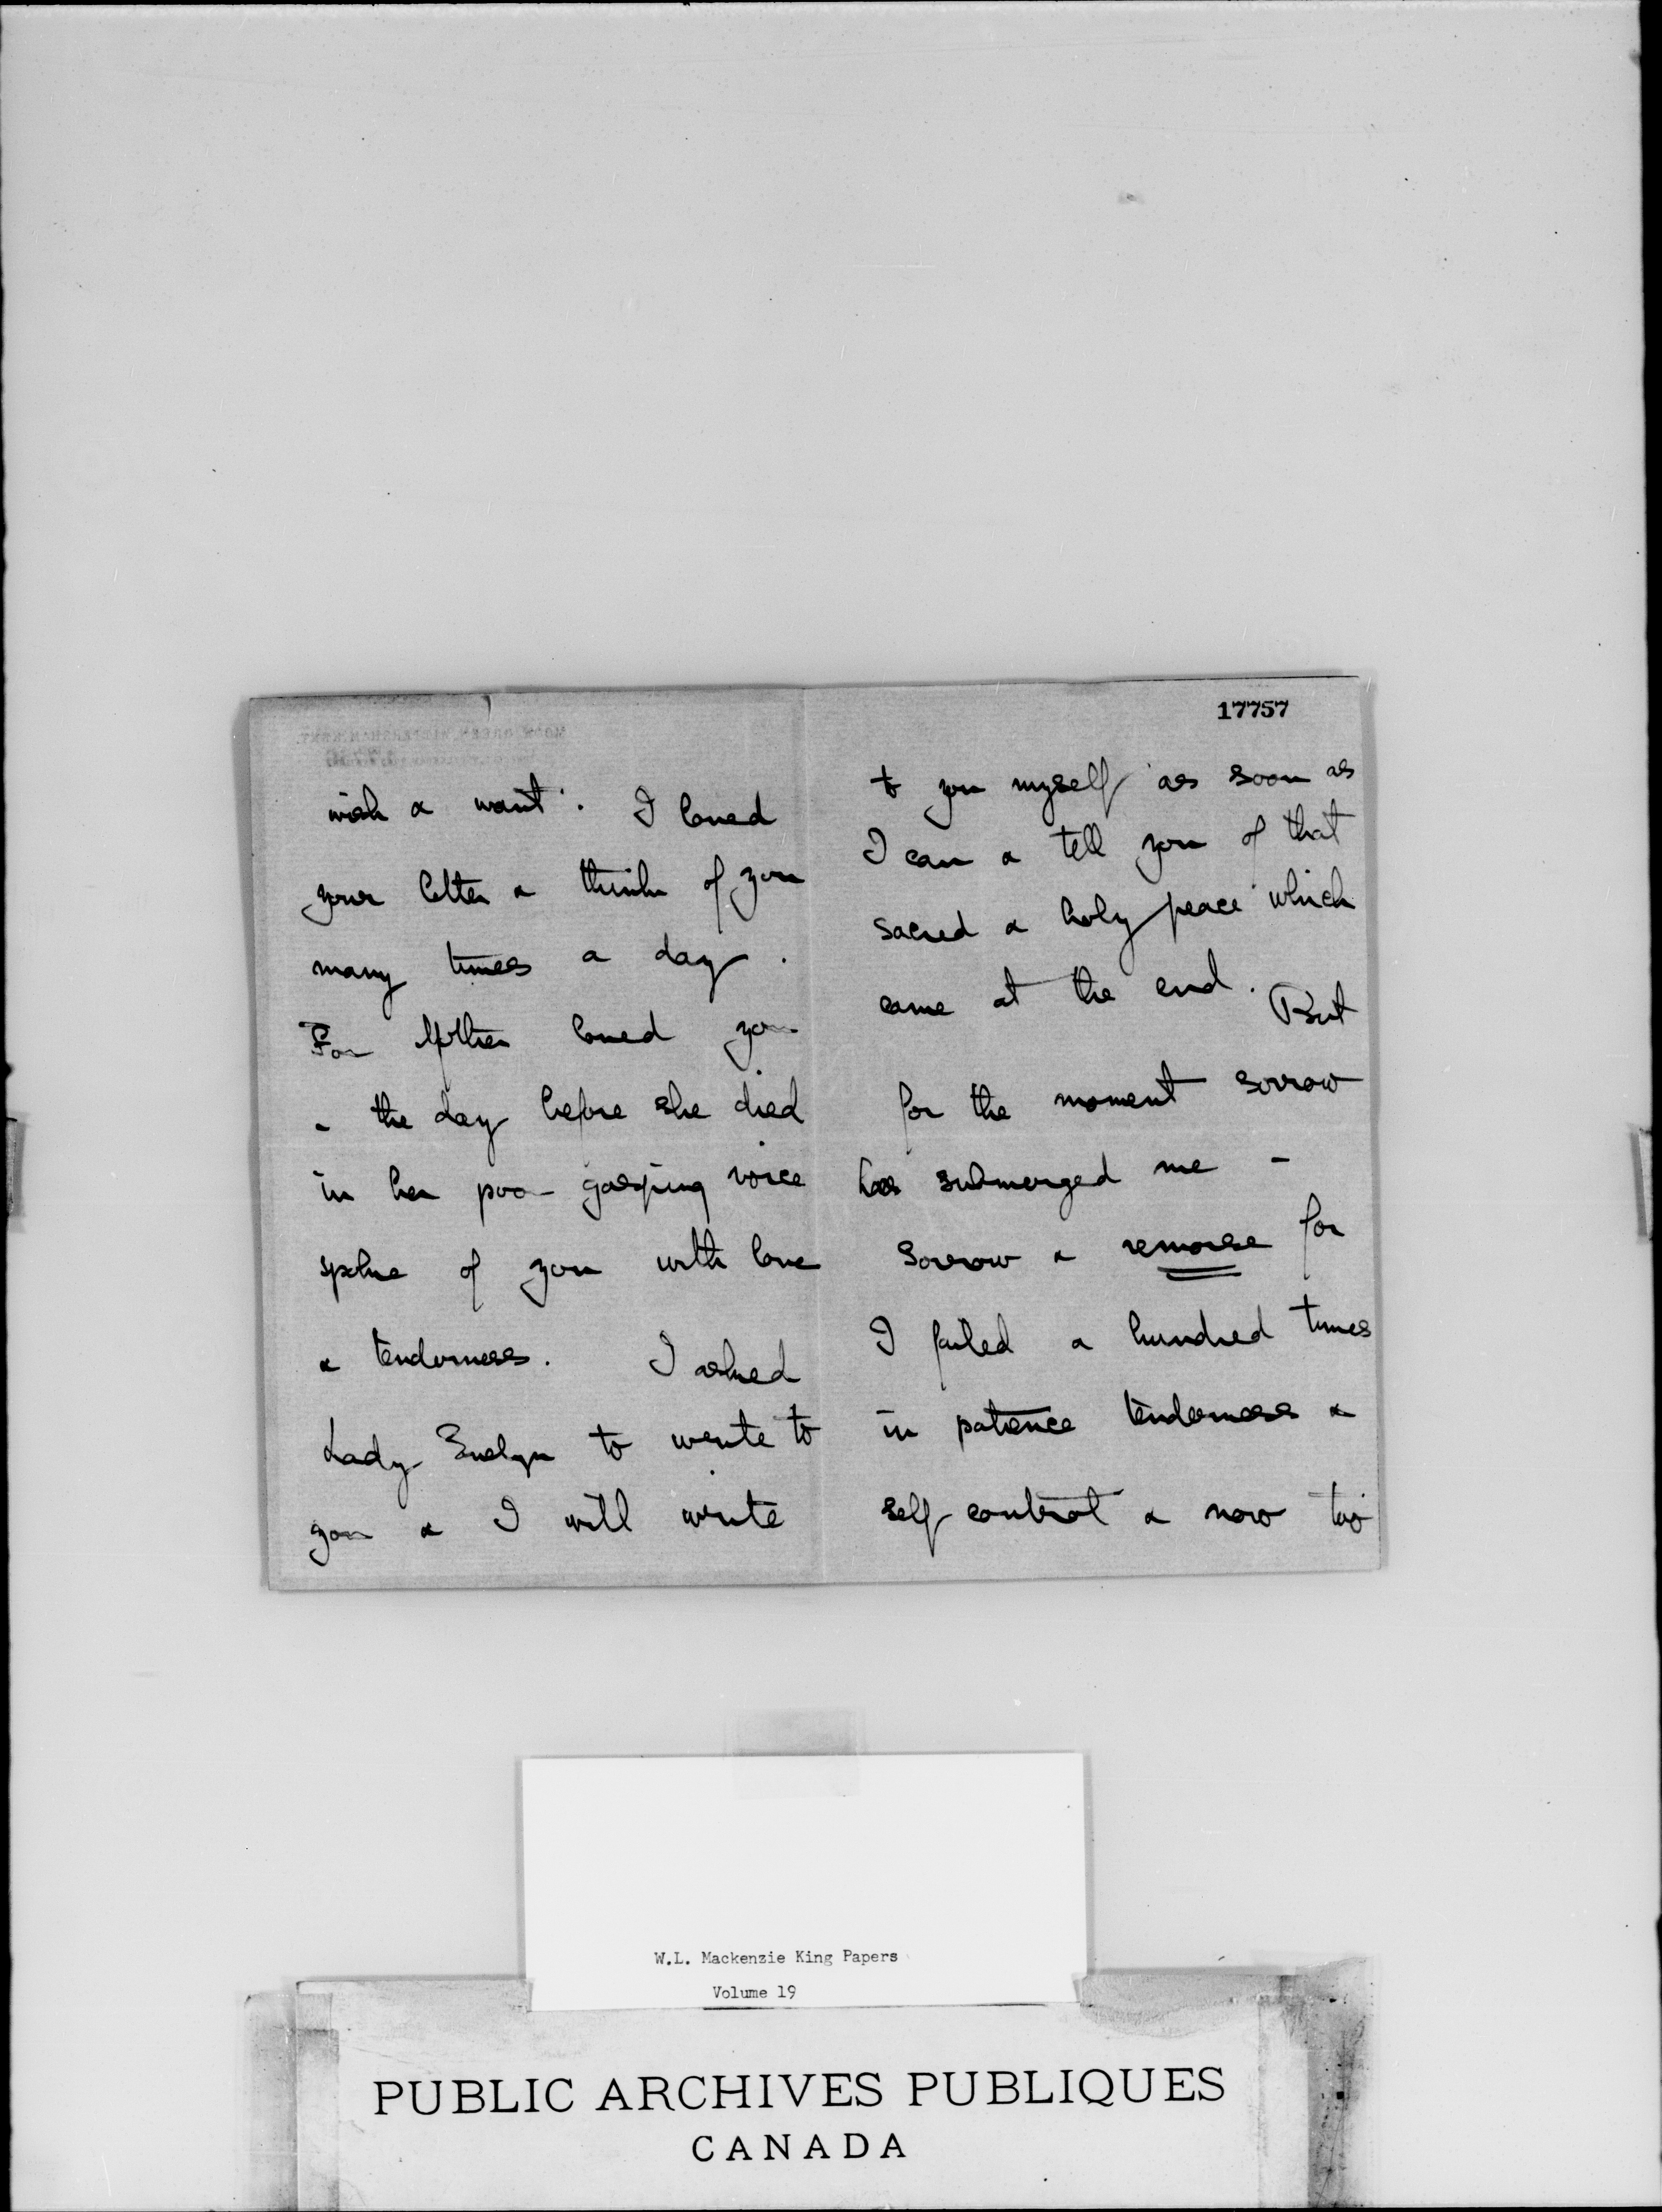 wish & want. I loved
your letter & think of you
many times a day.
For Mother loved you
- the day before she died
in her poor gasping voice
spoke of you with love
& tenderness. I asked
Lady Evelyn to write to
you & I will write
17757
to you myself as soon as
I can & tell you of that
sacred & holy peace which
came at the end. But
for the moment sorrow
has submerged me -
sorrow & remorse for
I failed a hundred times
in patience tenderness &
self control & now too
W.L. Mackenzie King Papers
Volume 19
PUBLIC ARCHIVES PUBLIQUES
CANADA